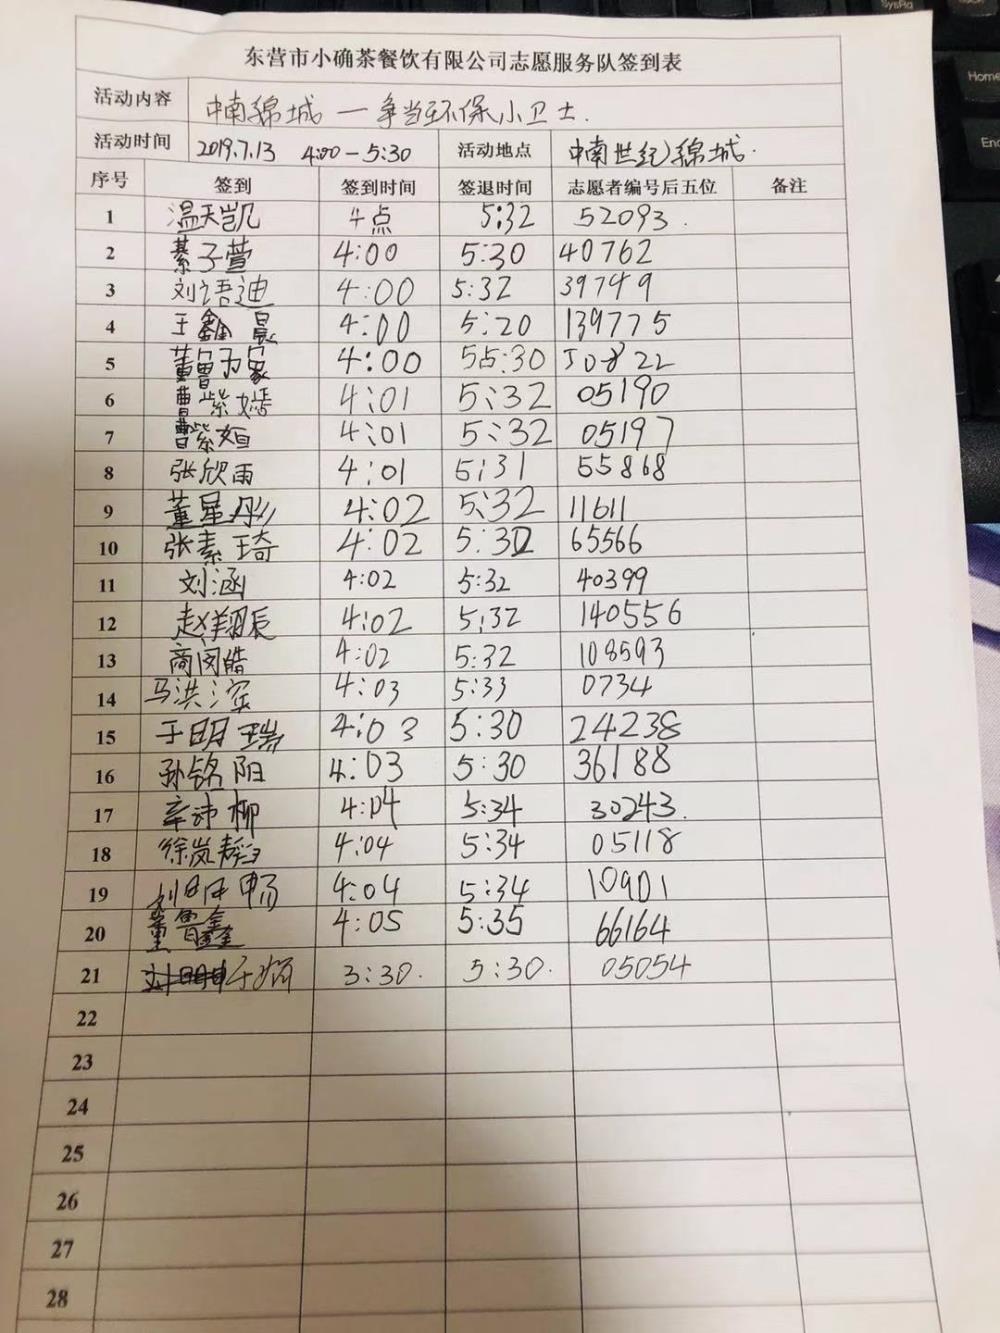 东营市小确茶餐饮有限公司志愿服务队签到表
活动内容 中南锦城 — 争当环保小卫士.
活动时间 2019.7.13 4:00-5:30 活动地点 中南世纪锦城.
序号 签到 签到时间 签退时间 志愿者编号后五位 备注
1 温天凯 4点 5:32 52093.
2 綦子萱 4:00 5:30 40762
3 刘语迪 4:00 5:32 39749
4 王鑫晨 4:00 5:20 139775
5 董 4:00 5点:30 50822
6 曹紫嫣 4:01 5:32 05190
7 曹紫姮 4:01 5:32 05197
8 张欣雨 4:01 5:31 55868
9 董星彤 4:02 5:32 11611
10 张素琦 4:02 5:32 65566
11 刘涵 4:02 5:32 40399
12 赵翔辰 4:02 5:32 140556
13 商闵皓 4:02 5:32 108593
14 马洪深 4:03 5:33 0734
15 于明瑞 4:03 5:30 24238
16 孙铭阳 4:03 5:30 36188
17 辛沛柳 4:04 5:34 30243.
18 徐岚韬 4:04 5:34 05118
19 刘畅 4:04 5:34 10901
20 董鲁鑫 4:05 5:35 66164
21 于娟 3:30. 5:30. 05054
22
23
24
25
26
27
28
SysRq
Home
End